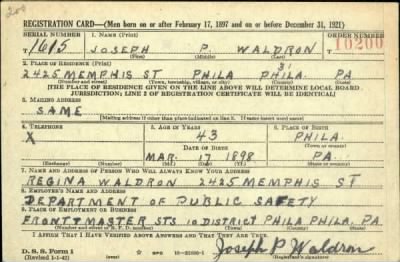 200
REGISTRATION CARD—(Men born on or after February 17, 1897 and on or before December 31, 1921)
SERIAL NUMBER 1. NAME (Print) ORDER NUMBER
T 1615 JOSEPH P. WALDRON 10200
(First) (Middle) (Last)
2. PLACE OF RESIDENCE (Print)
2425 MEMPHIS ST PHILA PHILA. PA
(Number and street) (Town, township, village, or city) (County) (State)
[THE PLACE OF RESIDENCE GIVEN ON THE LINE ABOVE WILL DETERMINE LOCAL BOARD
JURISDICTION; LINE 2 OF REGISTRATION CERTIFICATE WILL BE IDENTICAL]
3. MAILING ADDRESS
SAME
[Mailing address if other than place indicated on line 2. If same insert word same]
4. TELEPHONE 5. AGE IN YEARS 6. PLACE OF BIRTH
X 43 PHILA.
DATE OF BIRTH (Town or county)
MAR. 17 1898 PA.
(Exchange) (Number) (Mo.) (Day) (Yr.) (State or country)
7. NAME AND ADDRESS OF PERSON WHO WILL ALWAYS KNOW YOUR ADDRESS
REGINA WALDRON 2425 MEMPHIS ST
8. EMPLOYER'S NAME AND ADDRESS
DEPARTMENT OF PUBLIC SAFETY
9. PLACE OF EMPLOYMENT OR BUSINESS
FRONT & MASTER STS 10 DISTRICT PHILA PHILA. PA.
(Number and street or R. F. D. number) (Town) (County) (State)
I AFFIRM THAT I HAVE VERIFIED ABOVE ANSWERS AND THAT THEY ARE TRUE.
D. S. S. Form 1
(Revised 1-1-42) (over) GPO Joseph P Waldron